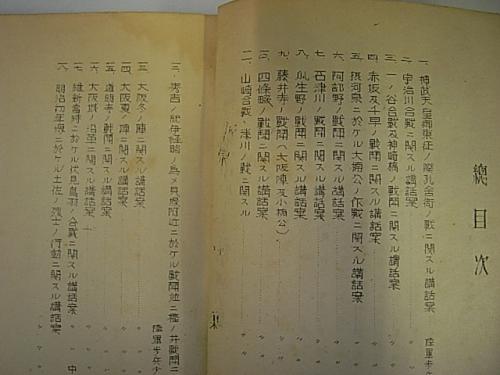 總目次
一、神武天皇御東征ノ際孔舎衛ノ戰ニ關スル講話案
二、宇治川合戰ニ關スル講話案
三、一ノ谷合戰及神崎橋ノ戰鬪ニ關スル講話案
四、赤坂及千早ノ戰鬪ニ關スル講話案
五、摂河泉ニ於ケル大楠公ノ作戰ニ關スル講話案
六、阿部野ノ戰鬪ニ關スル講話案
七、石津川ノ戰鬪ニ關スル講話案
八、瓜生野ノ戰鬪ニ關スル講話案
九、藤井寺ノ戰鬪(大阪陣及小楠公)
一〇、四條畷ノ戰鬪ニ關スル講話案
二、山崎合戰、淀川ノ戰ニ關スル
陸軍歩
三、秀吉ノ紀伊経略ノ為メ貝塚附近ニ於ケル戰鬪並ニ樫ノ井戰鬪ニ
陸軍歩兵少
三、大坂冬ノ陣ニ關スル講話案
四、大坂夏ノ陣ニ關スル講話案
五、道明寺ノ戰鬪ニ關スル講話案
六、大阪城ノ沿革ニ關スル講話案
七、維新當時ニ於ケル伏見鳥羽ノ合戰ニ關スル講話案 中
八、明治四年頃ニ於ケル土佐ノ殘士ノ行動ニ關スル講話案